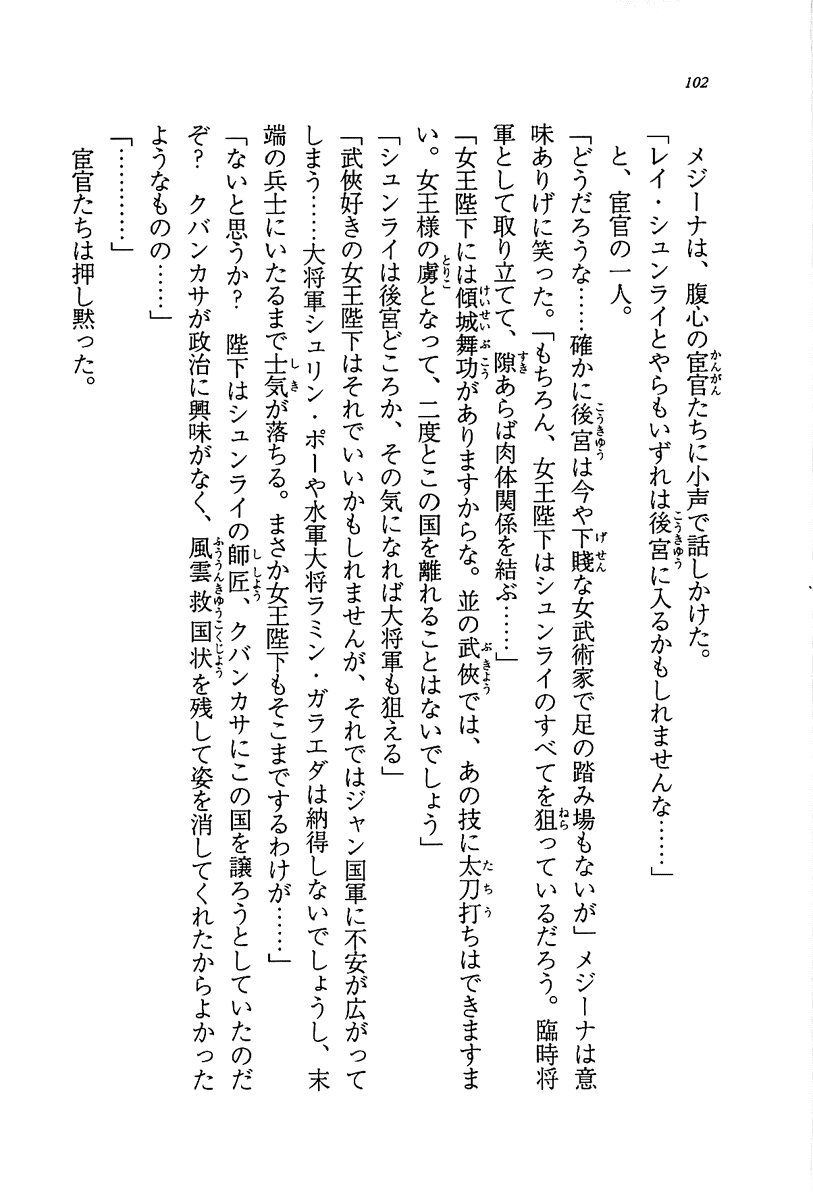 102
メジーナは、腹心の宦官たちに小声で話しかけた。
「レイ・シュンライとやらもいずれは後宮に入るかもしれませんな……」
と、宦官の一人。
「どうだろうな……確かに後宮は今や下賤な女武術家で足の踏み場もないが」メジーナは意
味ありげに笑った。「もちろん、女王陛下はシュンライのすべてを狙っているだろう。臨時将
軍として取り立てて、隙あらば肉体関係を結ぶ……」
「女王陛下には傾城舞功がありますからな。並の武俠では、あの技に太刀打ちはできますま
い。女王様の虜となって、二度とこの国を離れることはないでしょう」
「シュンライは後宮どころか、その気になれば大将軍も狙える」
「武俠好きの女王陛下はそれでいいかもしれませんが、それではジャン国軍に不安が広がって
しまう……大将軍シュリン・ポーや水軍大将ラミン・ガラエダは納得しないでしょうし、末
端の兵士にいたるまで士気が落ちる。まさか女王陛下もそこまでするわけが……」
「ないと思うか？　陛下はシュンライの師匠、クバンカサにこの国を譲ろうとしていたのだ
ぞ？　クバンカサが政治に興味がなく、風雲救国状を残して姿を消してくれたからよかった
ようなものの……」
「…………」
宦官たちは押し黙った。